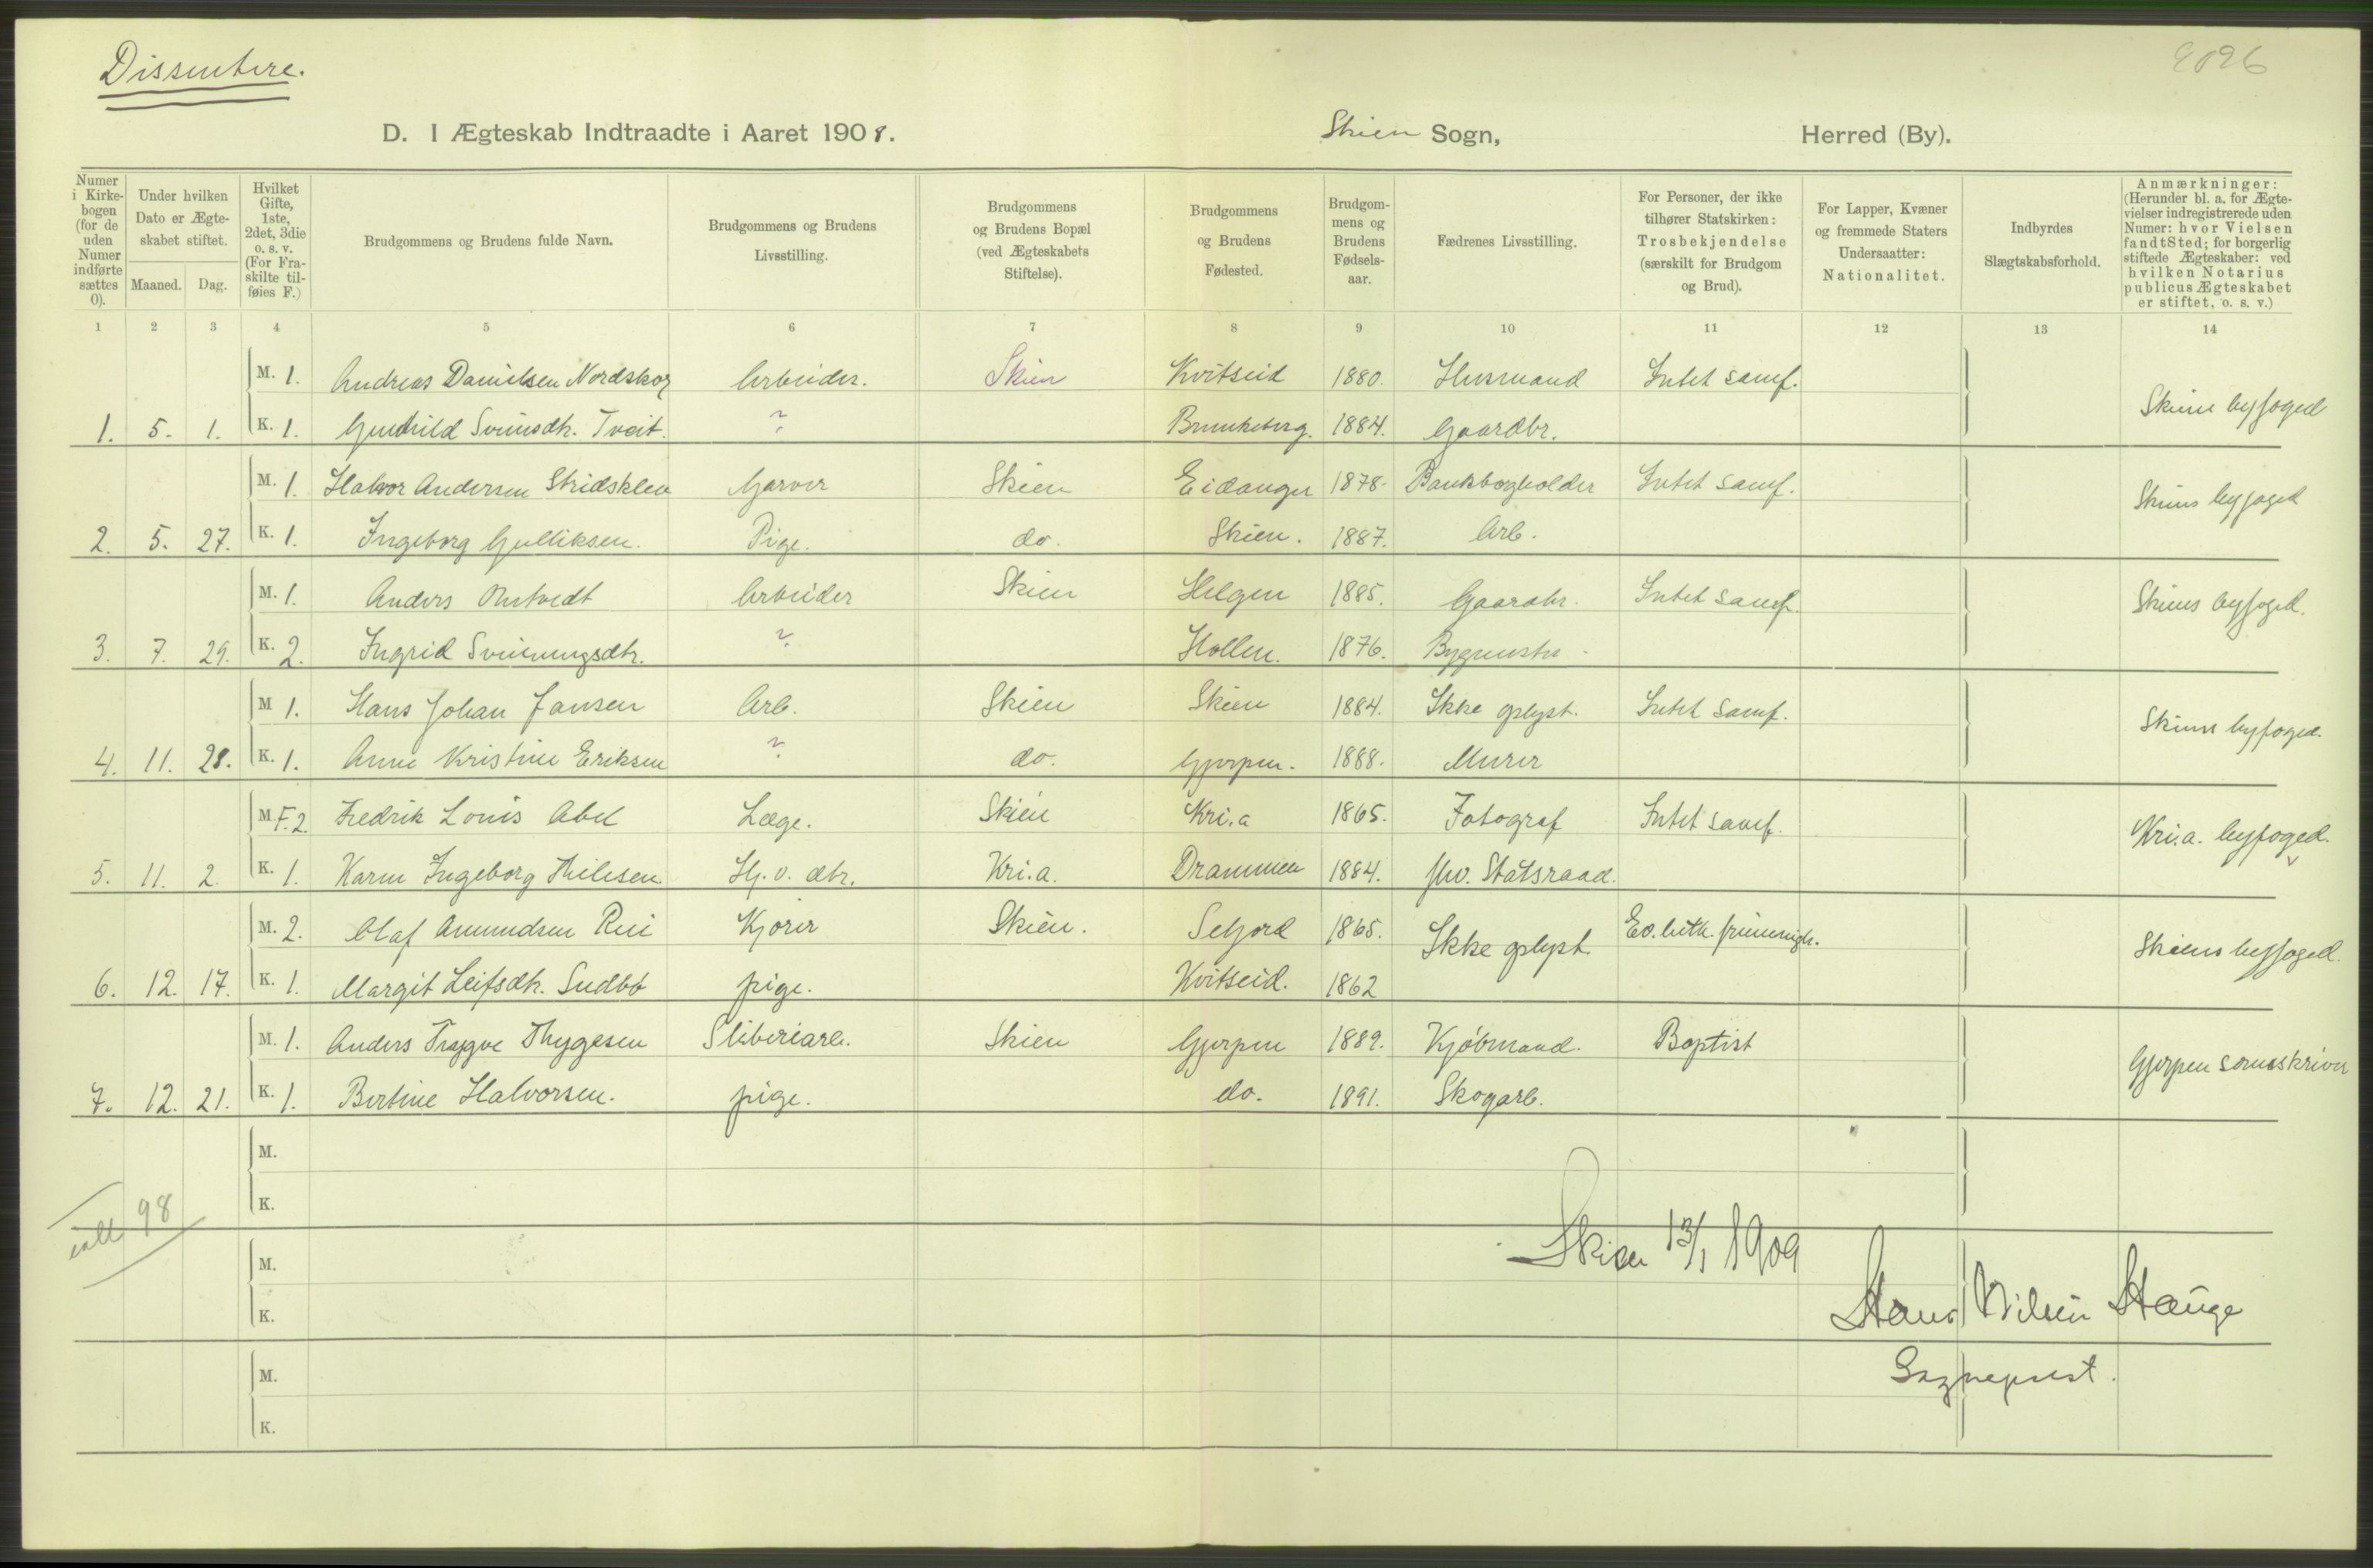 Dissentere.
9096
D. I Ægteskab Indtraadte i Aaret 1908. Skien Sogn, Herred (By).
Numer i Kirke-bogen (for de uden Numer indførte sættes 0).
Under hvilken Dato er Ægte-skabet stiftet.
Maaned. Dag.
Hvilket Gifte, 1ste, 2det, 3die o. s. v. (For Fra-skilte til-føies F.)
Brudgommens og Brudens fulde Navn.
Brudgommens og Brudens Livsstilling.
Brudgommens og Brudens Bopæl (ved Ægteskabets Stiftelse).
Brudgommens og Brudens Fødested.
Brudgom-mens og Brudens Fødsels-aar.
Fædrenes Livsstilling.
For Personer, der ikke tilhører Statskirken: Trosbekjendelse (særskilt for Brudgom og Brud).
For Lapper, Kvæner og fremmede Staters Undersaatter: Nationalitet.
Indbyrdes Slægtskabsforhold.
Anmærkninger: (Herunder bl. a. for Ægte-vielser indregistrerede uden Numer: hvor Vielsen fandt Sted; for borgerlig stiftede Ægteskaber: ved hvilken Notarius publicus Ægteskabet er stiftet, o. s. v.)
1 2 3 4 5 6 7 8 9 10 11 12 13 14
M. 1. Andreas Danielsen Nordskog Arbeider. Skien Kvitseid 1880. Husmand Intet samf.
Skiens byfoged
1. 5. 1. K. 1. Gunhild Sveinsdtr. Tveit. ? Brunkeberg. 1884. Gaardbr.
M. 1. Halvor Andersen Stridsklev Garver Skien Eidanger 1878. Bankbogholder Intet samf.
Skiens byfoged
2. 5. 27. K. 1. Ingeborg Gulliksen. Pige. do. Skien. 1887. Arb.
M. 1. Anders Ontvedt Arbeider Skien Helgen 1885. Gaardbr. Intet samf.
Skiens byfoged.
3. 7. 29. K. 2. Ingrid Sveinungsdtr. ? Hollen. 1876. Bygmestr
M 1. Hans Johan Jansen Arb. Skien Skien 1884. Ikke oplyst. Intet samf.
Skiens byfoged.
4. 11. 28. K. 1. Anne Kristine Eriksen ? do. Gjerpen. 1888. Murer
M. F. 2. Fredrik Louis Abel Læge. Skien Kri.a 1865. Fotograf Intet samf.
Kri.a. byfoged.
5. 11. 2. K. 1. Karen Ingeborg Thilesen Hj. v. dtr. Kri.a. Drammen 1884. fhv. Statsraad.
M. 2. Olaf Amundsen Rui Kjører Skien. Seljord 1865. Ikke oplyst. Ev. luth. frimenigh.
Skiens byfoged.
6. 12. 17. K. 1. Margit Leifsdtr. Sudbø pige. Kvitseid. 1862
M. 1. Anders Tryggve Thygesen Sliberiarb. Skien Gjerpen 1889. Kjøbmand. Baptist
Gjerpen sorenskriver
7. 12. 21. K. 1. Bertine Halvorsen. pige. do. 1891. Skogarb.
M.
K.
ialt 98
Skien 13/1 1909
M.
K.
Hans Nilsen Hauge
M.
Sogneprest.
K.